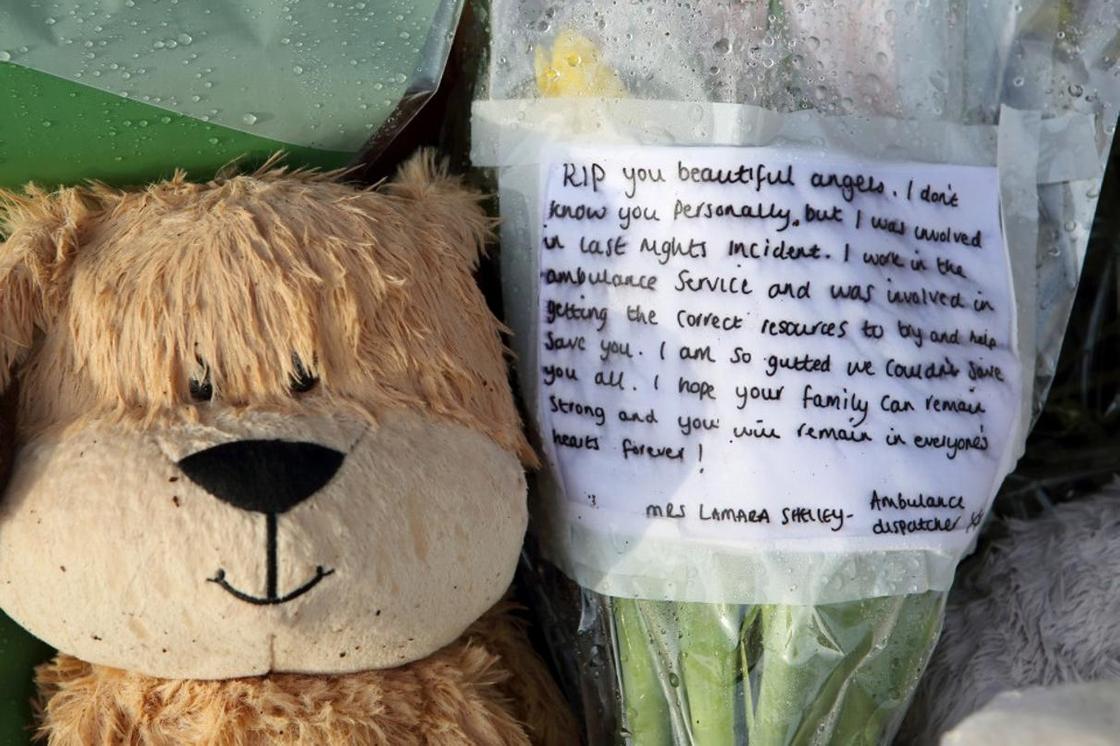 RIP you beautiful angels. I don't
know you personally, but I was involved
in last nights incident. I work in the
ambulance service and was involved in
getting the correct resources to try and help
save you. I am so gutted we couldn't save
you all. I hope your family can remain
strong and you will remain in everyone's
hearts forever!
MRS LAMARA SHELLEY- Ambulance
dispatcher